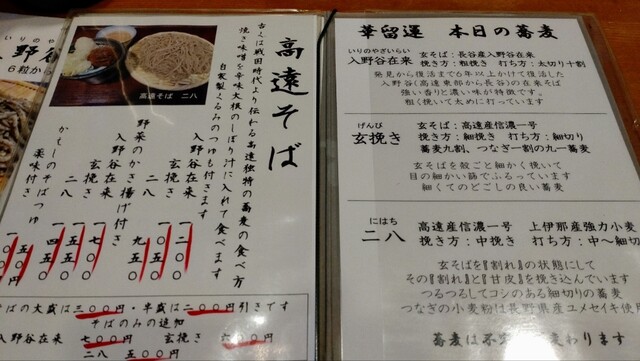 いりのや
入野谷
6粒か
高遠そば 二八
高遠そば
古くは戦国時代より伝わる高遠独特の蕎麦の食べ方
焼き味噌を辛味大根のしぼり汁に入れて食べます
自家製くるみのつゆも付きます
入野谷在来 一二〇〇
玄挽き 一一〇〇
二八 九五〇
野菜のかき揚げ付き
入野谷在来 一七〇〇
玄挽き
二八 一四五〇
かもしのそばつゆ
薬味付き
そばの大盛は三〇〇円・半盛は二〇〇円引きです
そばのみの追加
入野谷在来 七〇〇円 玄挽き 六〇〇円
二八 五〇〇円
華留運 本日の蕎麦
いりのやざいらい
入野谷在来
玄そば:長谷産入野谷在来
挽き方:粗挽き 打ち方:太切り十割
発見から復活まで6年以上かけて復活した
入野谷(高遠東部から長谷)の在来そば
強い香りと濃い味が特徴です。
粗く挽いて太めに打っています
げんび
玄挽き
玄そば:高遠産信濃一号
挽き方:細挽き 打ち方:細切り
蕎麦九割、つなぎ一割の九一蕎麦
玄そばを殻ごと細かく挽いて
目の細かい篩でふるっています
細くてのどごしの良い蕎麦
にはち
二八
高遠産信濃一号 上伊那産強力小麦
挽き方:中挽き 打ち方:中〜細切
玄そばを『割れ』の状態にして
その『割れ』と『甘皮』を挽き込んでいます
つるつるしてコシのある細切りの蕎麦
つなぎの小麦粉は長野県産ユメセイキ使用
蕎麦は不定
変わります